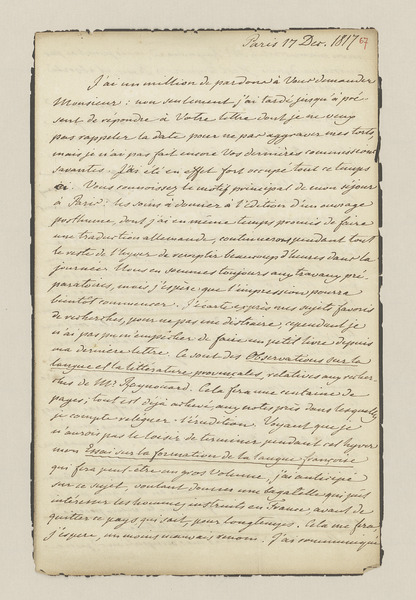 Paris 17 Dec. 1817 67
J'ai un million de pardons à Vous demander
Monsieur: non seulement j'ai tardé jusqu'à pré-
sent de répondre à Votre lettre dont je ne veux
pas rappeler la date pour ne pas aggraver mes torts,
mais je n'ai pas fait encore Vos dernières commissions
savantes. J'ai été en effet fort occupé tout ce temps
ci. Vous connoissez le motif principal de mon séjour
à Paris: les soins à donner à l'édition d'un ouvrage
posthume, dont j'ai en même temps promis de faire
une traduction allemande, continueront pendant tout
le reste de l'hyver de remplir beaucoup d'heures dans la
journée. Nous en sommes toujours aux travaux pré-
paratoires, mais j'espère que l'impression pourra
bientôt commencer. J'écarte exprès mes sujets favoris
de recherches, pour ne pas me distraire, cependant je
n'ai pas pu m'empêcher de faire un petit livre depuis
ma dernière lettre. Ce sont des Observations sur la
langue et la littérature provençales, relatives aux recher-
ches de Mr Raynouard. Cela fera une centaine de
pages; tout est déjà achevé aux notes près dans lesquelles
je compte reléguer l'érudition. Voyant que je
n'aurois pas le loisir de terminer pendant cet hyver
mon Essai sur la formation de la langue françoise
qui fera peut-être un gros volume, j'ai anticipé
sur ce sujet, voulant donner une bagatelle qui puisse
intéresser les hommes instruits en France avant de
quitter ce pays qui sait, pour longtemps. Cela me fera,
j'espère, un moins mauvais renom. J'ai communiqué